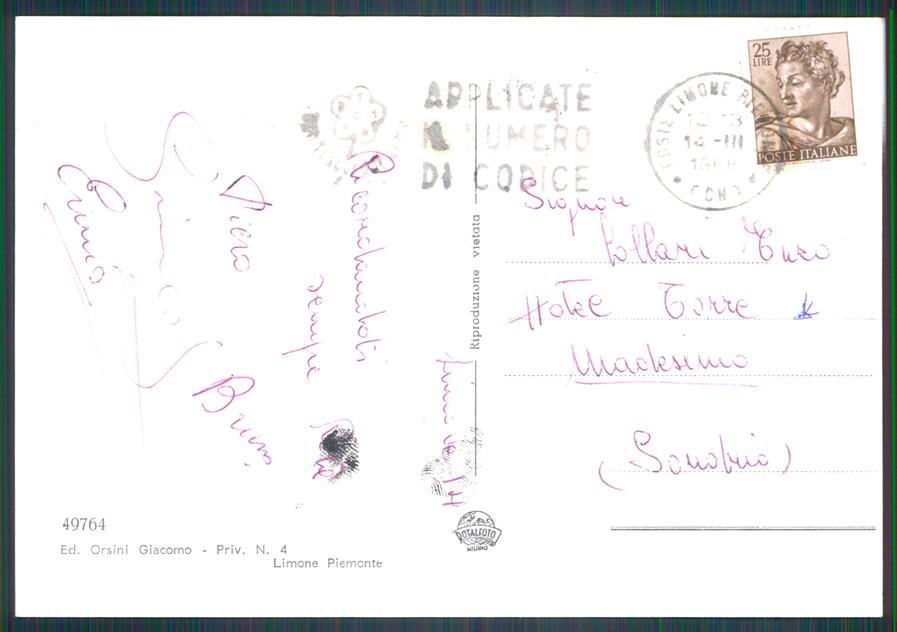 APPLICATE
IL NUMERO
DI CODICE
25
LIRE
POSTE ITALIANE
POSTE LIMONE
14-III
(CN)
Ricordandoti
sempre
Piero
Bruno
Limone 14
Riproduzione vietata
Signor
Collari Enzo
Hotel Torre
Madesimo
(Sondrio)
49764
Ed. Orsini Giacomo - Priv. N. 4
Limone Piemonte
ROTALFOTO
MILANO